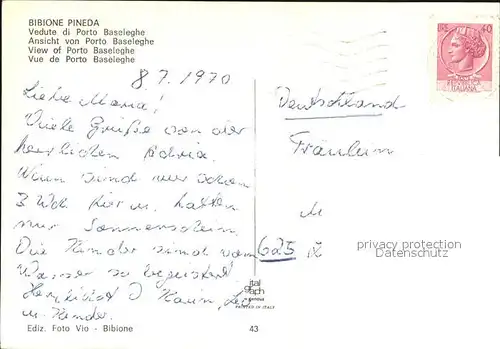 BIBIONE PINEDA
Vedute di Porto Baseleghe
Ansicht von Porto Baseleghe
View of Porto Baseleghe
Vue de Porto Baseleghe
40
ITALIANA
8 7. 1970
Liebe Maria!
Viele Grüße von der
herrlichen Adria.
Nun sind wir schon
3 Wch. hier u. hatten
nur Sonnenschein.
Die Kinder sind vom
Wasser so begeistert
Herzlichst
u. Kinder.
Deutschland
Fräulein
M
625
privacy protection
Datenschutz
ital
graph
genova
PRINTED IN ITALY
Ediz. Foto Vio - Bibione
43